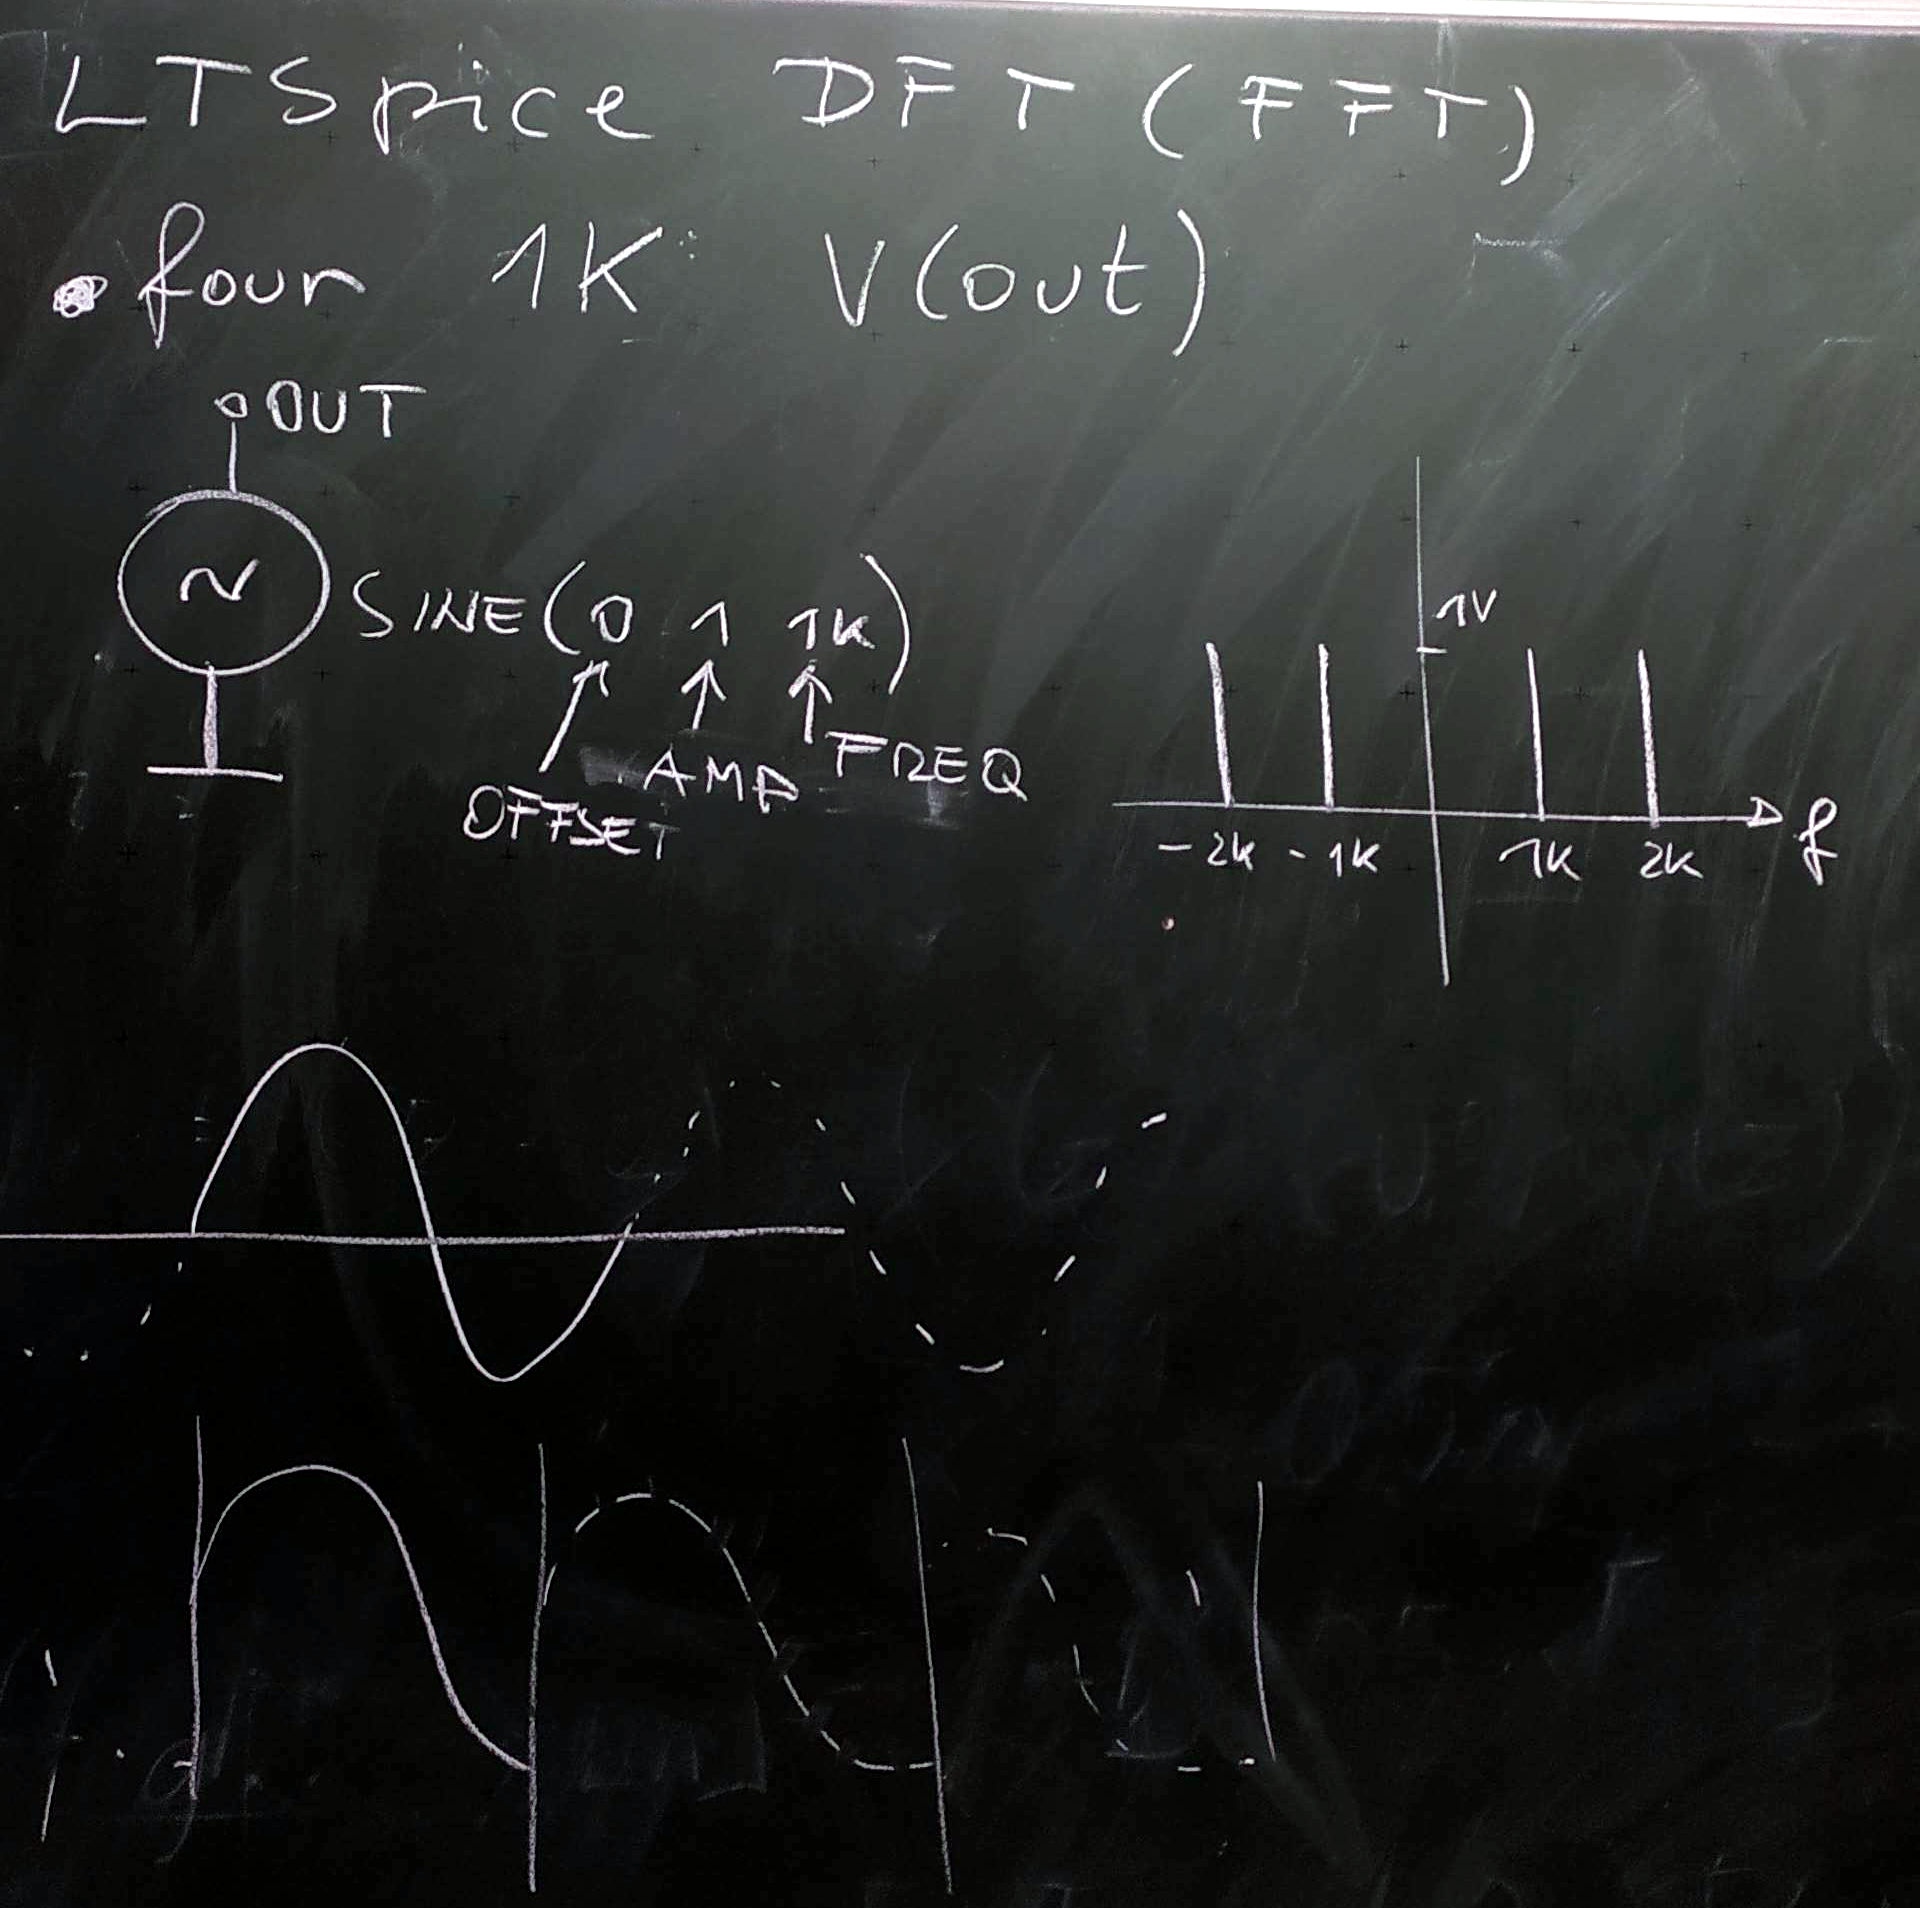 LTSpice DFT (FFT)
.four 1K V(out)
OUT
N SINE(0 1 1K)
OFFSET AMP FREQ
1V
-2K -1K 1K 2K f